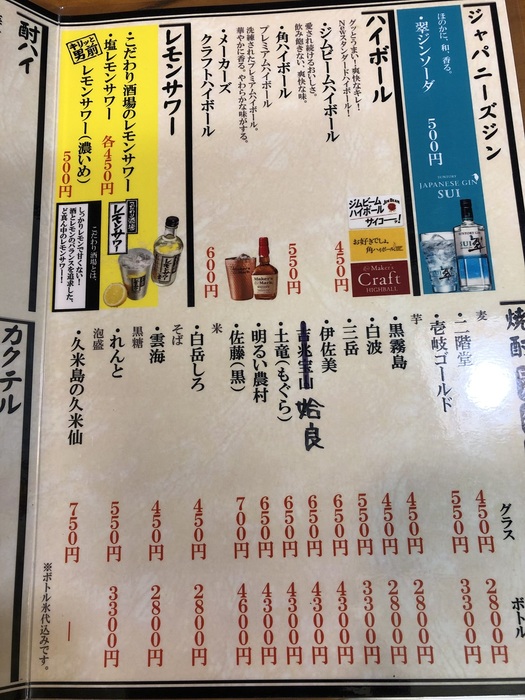 ジャパニーズジン
ほのかに、和、香る。
・翠ジンソーダ 500円
SUNTORY
JAPANESE GIN
SUI
ハイボール
グッとうまい!爽快なキレ!
Newスタンダードハイボール!
・ジムビームハイボール 450円
愛され続けるおいしさ。
飲み飽きない、爽快な味。
・角ハイボール 550円
プレミアムハイボール
洗練されたプレミアムハイボール。
華やかに香る。やわらかな味がする。
・メーカーズ
クラフトハイボール 600円
ジムビーム
ハイボール
サイコー!
お好きでしょ、
角ハイボール
Maker's
Craft
HIGHBALL
レモンサワー
・こだわり酒場のレモンサワー
・塩レモンサワー 各450円
キリッと
男前
レモンサワー(濃いめ)
500円
こだわり酒場の
レモンサワー
こだわり酒場とは、
しっかりレモンで甘くない!
酒とレモンのバランスを追求した、
ど真ん中のレモンサワー
酎ハイ
カクテル
焼酎
グラス ボトル
麦
・二階堂 450円 2800円
・壱岐ゴールド 550円 3300円
芋
・黒霧島 450円 2800円
・白波 450円 2800円
・三岳 550円 3300円
・伊佐美 650円 4300円
・吉兆宝山 姶良 650円 4300円
・土竜(もぐら) 650円 4300円
・明るい農村 650円 4300円
・佐藤(黒) 700円 4600円
米
・白岳しろ 450円 2800円
そば
・雲海 450円 2800円
黒糖
・れんと 550円 3300円
泡盛
・久米島の久米仙 750円 ー
※ボトル氷代込みです。